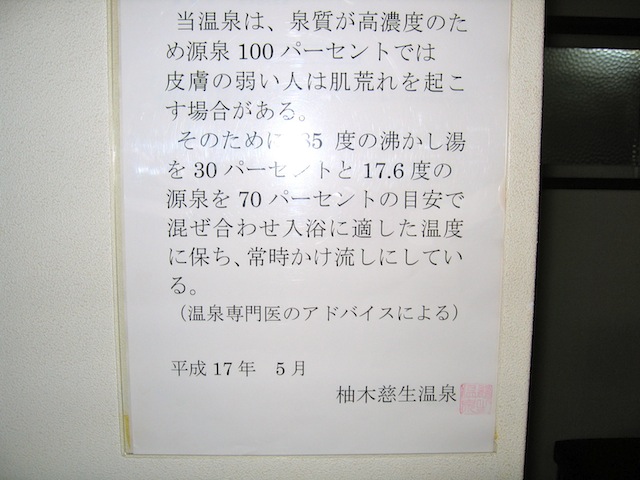 当温泉は、泉質が高濃度のた
め源泉100パーセントでは
皮膚の弱い人は肌荒れを起こ
す場合がある。
そのために 85 度の沸かし湯
を30パーセントと17.6度の
源泉を70パーセントの目安で
混ぜ合わせ入浴に適した温度
に保ち、常時かけ流しにしてい
る。
（温泉専門医のアドバイスによる）
平成17年 5月
柚木慈生温泉